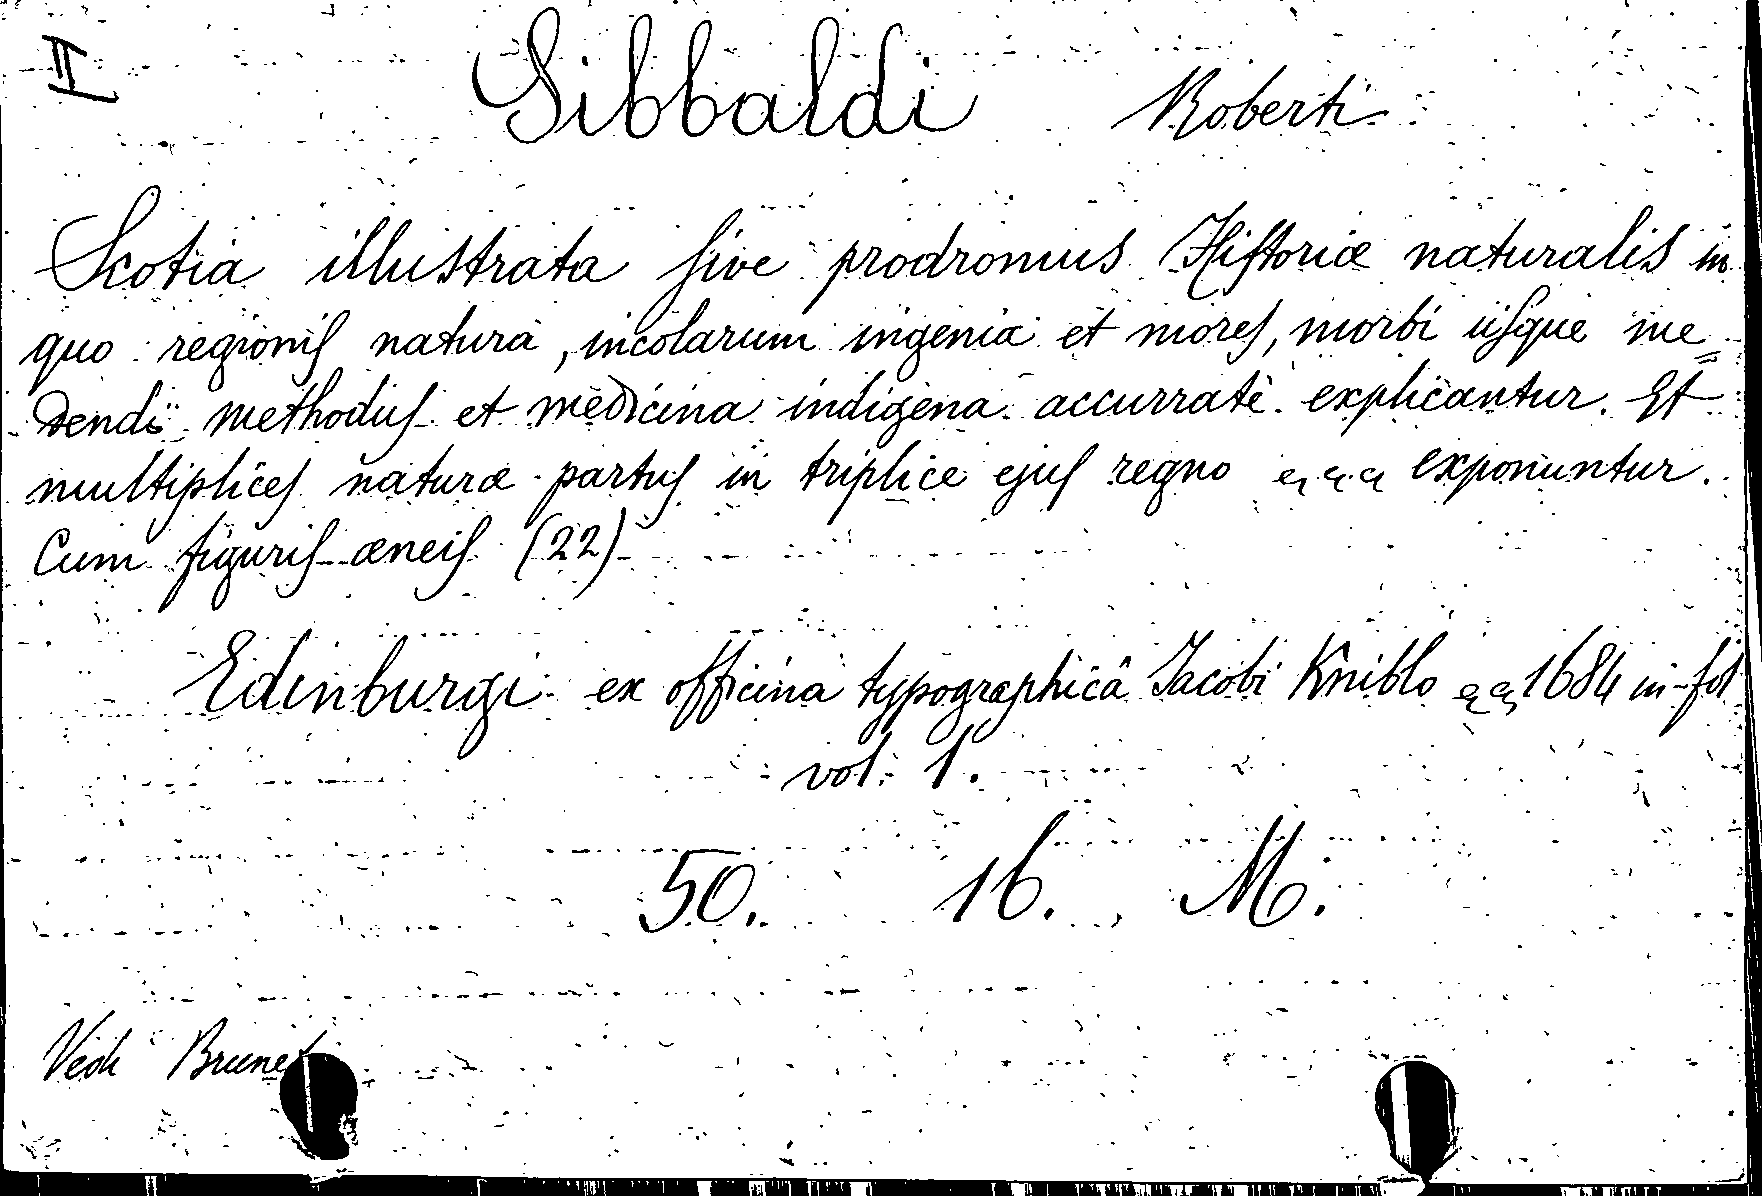 II
Sibbaldi Roberti
Scotia illustrata ſive prodromus Hiſtoriæ naturalis in
quo regioniſ natura, incolarum ingenia et moreſ, morbi iiſque me=
dendi methoduſ et medicina indigena accurratè explicantur. Et
multipliceſ naturæ partuſ in triplice ejuſ regno exponuntur.
Cum figuriſ æneiſ (22)
Edinburgi ex officina typographicâ Jacobi Kniblo 1684 in-fol
vol. 1.
50. 16. M.
Vedi Brunet